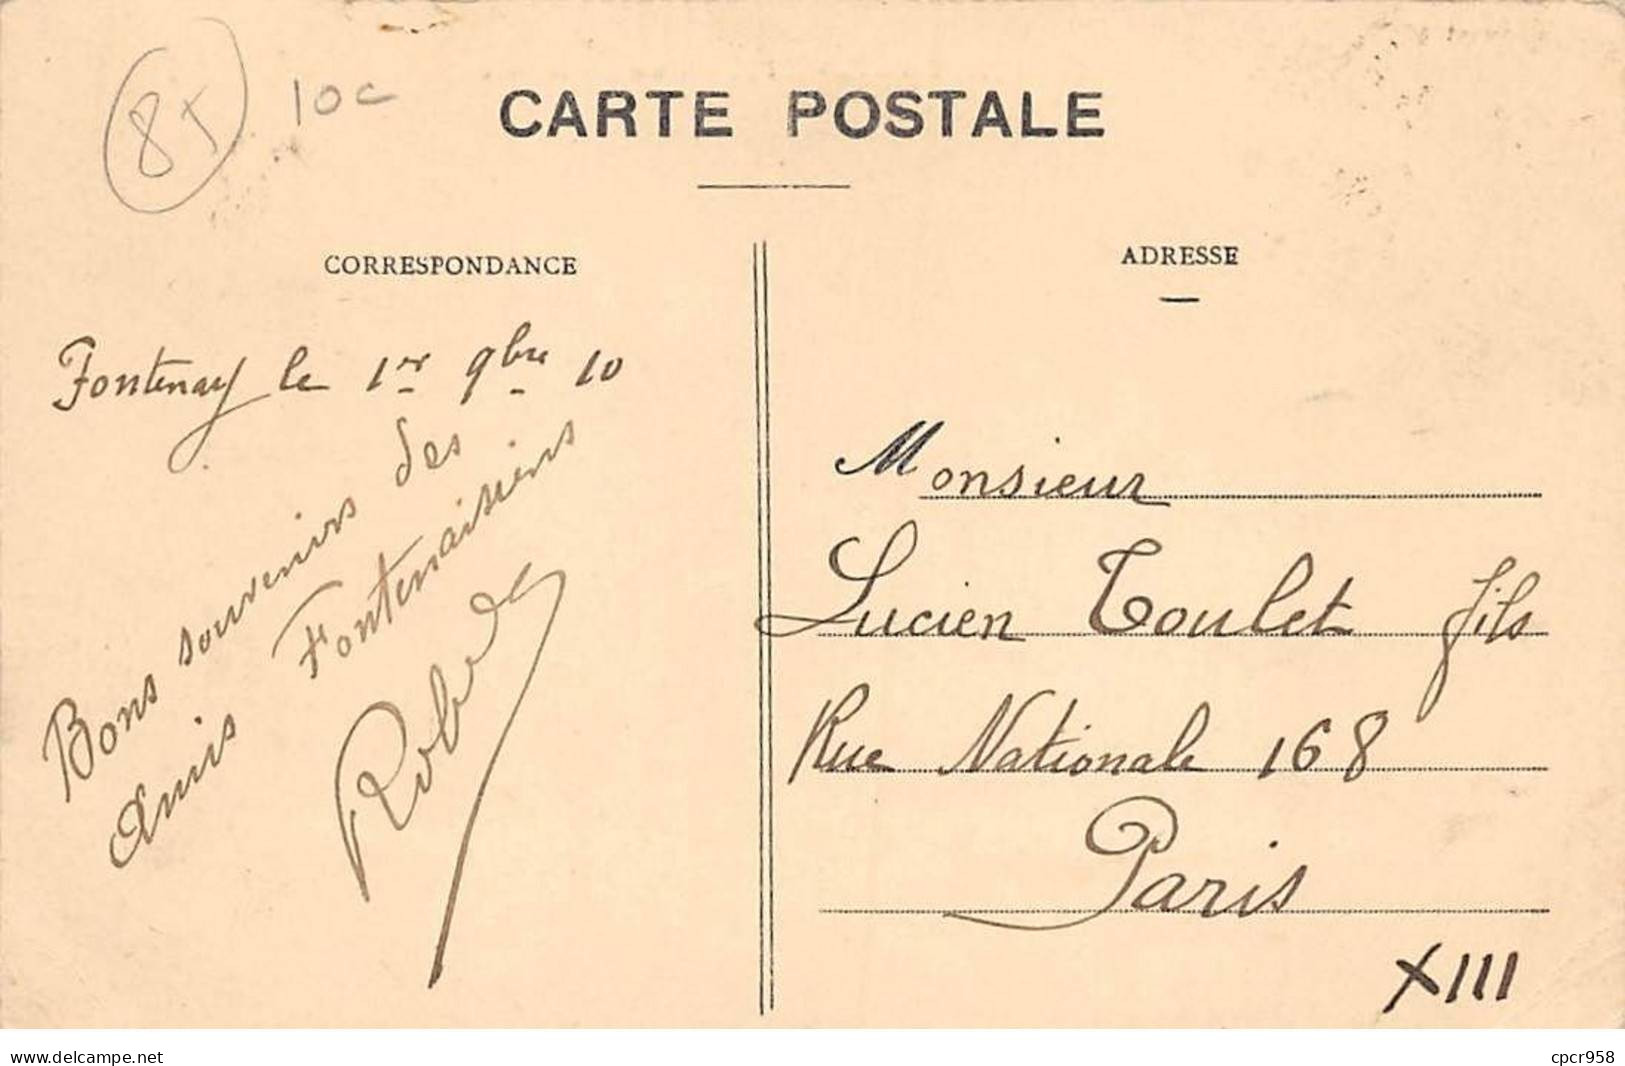 85
10c
CARTE POSTALE
CORRESPONDANCE
Fontenay le 1er 9bre 10
Bons souvenirs des
Amis Fontenaisiens
ADRESSE
Monsieur
Lucien Toulet fils
Rue Nationale 168
Paris
XIII
www.delcampe.net
cpcr958